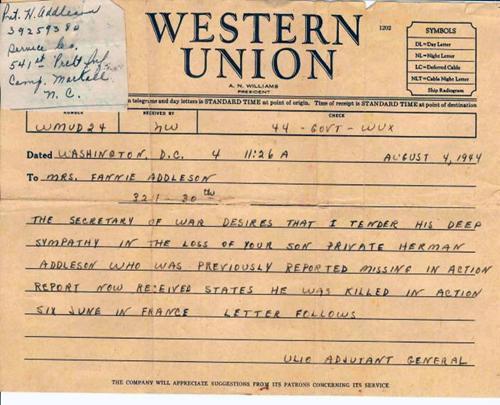 Pvt. H. Addleson
39259380
Service Co.
541st
Camp. Mackall
N.C.
WESTERN
UNION
1202
A. N. WILLIAMS
PRESIDENT
SYMBOLS
DL=Day Letter
NL=Night Letter
LC=Deferred Cable
NLT=Cable Night Letter
Ship Radiogram
telegrams and day letters is STANDARD TIME at point of origin. Time of receipt is STANDARD TIME at point of destination
NUMBER RECEIVED BY CHECK
WMUD24 NW 44 - GOVT - WUX
Dated WASHINGTON, D.C. 4 11:26 A AUGUST 4, 1944
To MRS. FANNIE ADDLESON
321 - 30th
THE SECRETARY OF WAR DESIRES THAT I TENDER HIS DEEP
SYMPATHY IN THE LOSS OF YOUR SON PRIVATE HERMAN
ADDLESON WHO WAS PREVIOUSLY REPORTED MISSING IN ACTION
REPORT NOW RECEIVED STATES HE WAS KILLED IN ACTION
SIX JUNE IN FRANCE LETTER FOLLOWS
ULIO ADJUTANT GENERAL
THE COMPANY WILL APPRECIATE SUGGESTIONS FROM ITS PATRONS CONCERNING ITS SERVICE